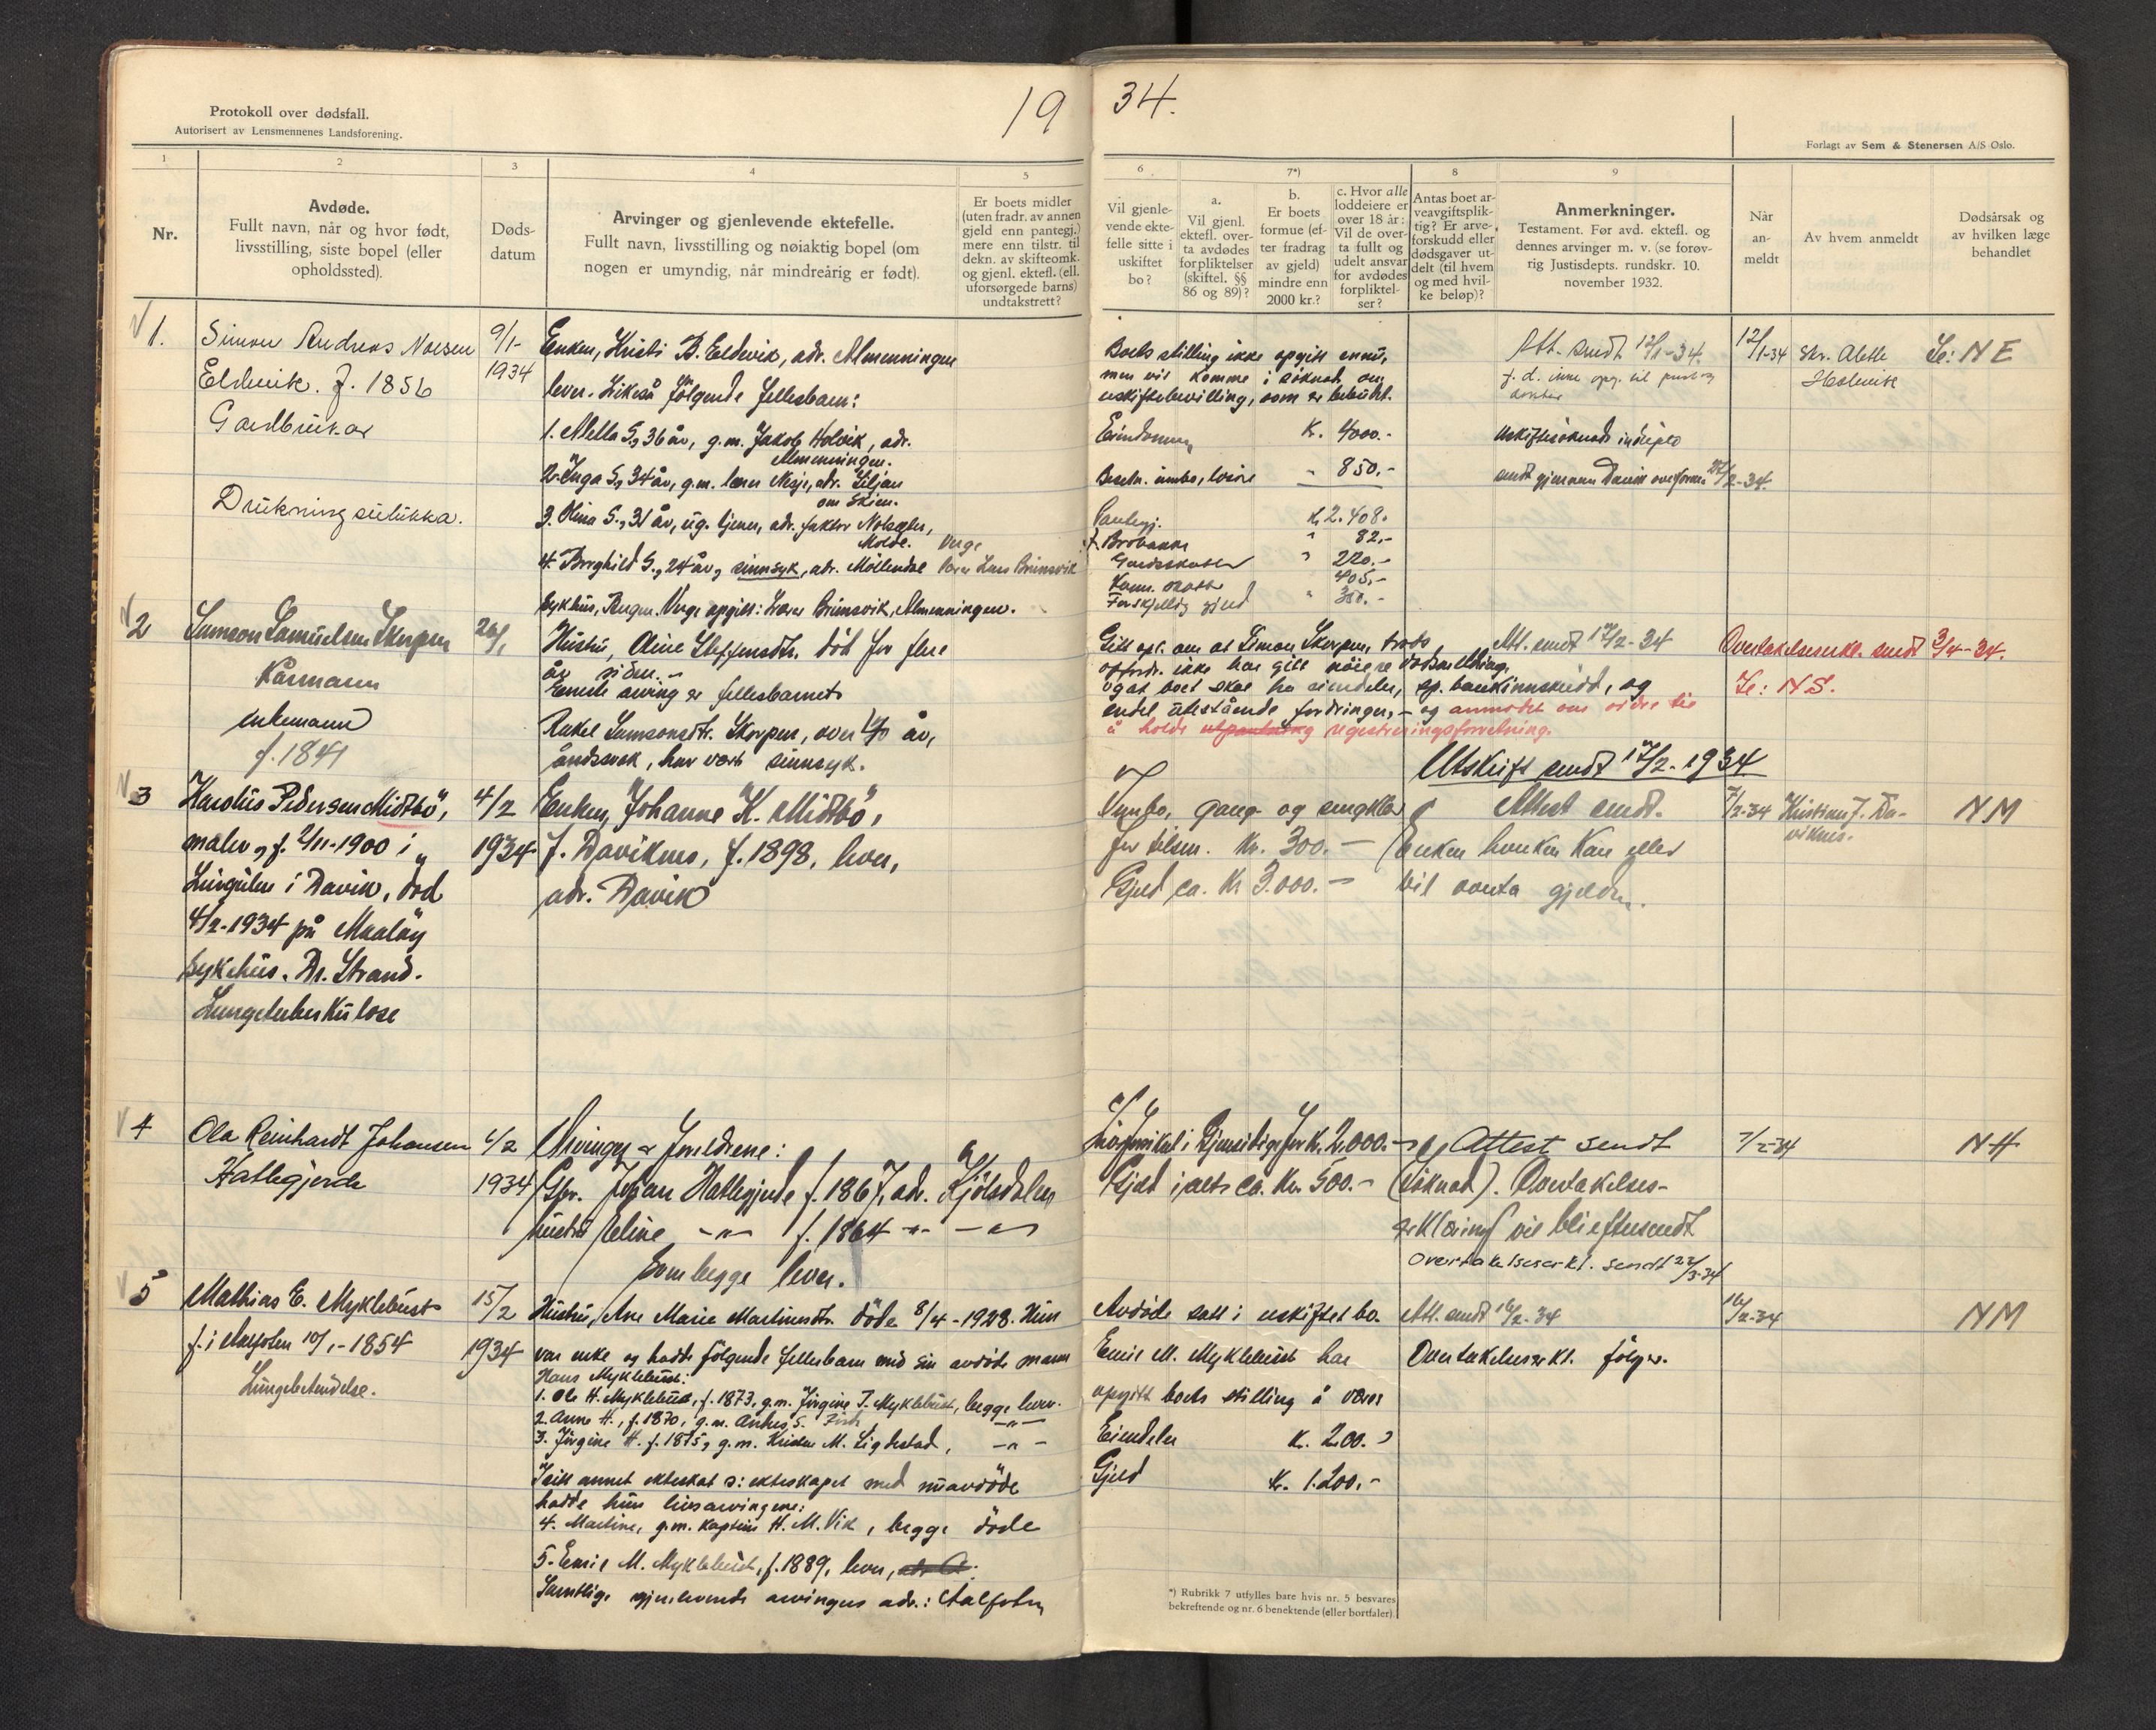 Protokoll over dødsfall.
Autorisert av Lensmennenes Landsforening.
19 34.
Forlagt av Sem & Stenersen A/S Oslo.
1
2
3
4
5
6
7*)
8
9
Nr.
Avdøde.
Fullt navn, når og hvor født,
livsstilling, siste bopel (eller
opholdssted).
Døds-
datum
Arvinger og gjenlevende ektefelle.
Fullt navn, livsstilling og nøiaktig bopel (om
nogen er umyndig, når mindreårig er født).
Er boets midler
(uten fradr. av annen
gjeld enn pantegj.)
mere enn tilstr. til
dekn. av skifteomk.
og gjenl. ektefl. (ell.
uforsørgede barns)
undtakstrett?
Vil gjenle-
vende ekte-
felle sitte i
uskiftet
bo?
a.
Vil gjenl.
ektefl. over-
ta avdødes
forpliktelser
(skiftel. §§
86 og 89)?
b.
Er boets
formue (ef-
ter fradrag
av gjeld)
mindre enn
2000 kr.?
c. Hvor alle
loddeiere er
over 18 år:
Vil de over-
ta fullt og
udelt ansvar
for avdødes
forpliktel-
ser?
Antas boet ar-
veavgiftsplik-
tig? Er arve-
forskudd eller
dødsgaver ut-
delt (til hvem
og med hvil-
ke beløp)?
Anmerkninger.
Testament. Før avd. ektefl. og
dennes arvinger m. v. (se forøv-
rig Justisdepts. rundskr. 10.
november 1932.
Når
an-
meldt
Av hvem anmeldt
Dødsårsak og
av hvilken læge
behandlet
1.
Simon Andreas
Eldevik. f. 1856
Gardbruker
Drukningsulukka.
9/1-
1934
Enken, Kristi B. Eldevik, adr. Almenningen
lever. Likeså følgende fellesbarn:
1. Aletta S., 36 år, g.m. Jakob Holvik, adr.
Almenningen.
2. Inga S., 34 år, g.m. lærer Nesje, adr. Siljan
om Skien.
3. Olina S., 31 år, ug. tjener, adr. faktor
Molde.
4. Borghild S., 24 år, sinnsyk, adr. Möllendal
Verge
Lars Brimsvik
sykhus, Bergen. Verge opgitt: Brimsvik, Almenningen.
Boets stilling ikke opgitt ennu,
men vil komme i söknad om
uskiftebevilling, som er bebudet.
Eiendommen K. 4000.-
" 850.-
Pantegj. K. 2.408.-
" 82.-
Gardsskatter " 220.-
Komm. skatter 405.-
Forskjellig gjeld " 350.-
Att. sendt 12/1-34.
Uskiftesöknad
sendt gjennem Davik 27/2-34.
12/1-34
Skr. Aletta
Holvik
Se: N E
2
Samson Samuelsen Skorpen
Kårmann
enkemann
f. 1841
26/1
Hustru, Oline Steffensdtr. död for flere
år siden.-
Eneste arving er fellesbarnet
Rakel Samsonsdtr. Skorpen, over 40 år,
åndssvak, har vært sinnsyk.
Gitt opl. om at Simon Skorpen, trods
opfordr. ikke har gitt nöiere dödsmelding,
og at boet skal ha eiendeler, sp. bankinnskudd, og
endel utestående fordringer,- og anmodet om ordre til
å holde utpantning registreringsforretning.
Att. sendt 17/2-34
Overtakelseserkl. sendt 3/4-34.
Se: N S.
Utskrift sendt 17/2-1934
3
Karolus Pedersen Midtbö,
maler, f. 2/11-1900 i
i Davik, död
4/2-1934 på Maalöy
sykehus. Dr. Strand.
Lungetuberkulose
4/2
1934
Enken, Johanne K. Midtbö,
f. Daviknes, f. 1898, lever,
adr. Davik
Innbo, gang og sengklær
for tilsm. Kr. 300.-
Gjeld ca. Kr 3.000.-
Attest sendt.
Enken hverken kan eller
vil overta gjelden.
7/2-34
Kristian J. Da-
viknes.
NM
4
Ola Reinhardt Johansen
Hatlegjerde
4/2
1934
Arvinger er foreldrene:
Gbr. Johan Hatlegjerde f. 1867, adr. Kjölsdalen
hustru Eline -"- f. 1864 -"- -"-
Som begge lever.
Livsforsikret i Gjensidige for Kr. 2.000.-
Gjeld i alt ca. Kr. 500.-
Attest sendt
(söknad). Overtakelses-
erklæring vil bli eftersendt
Overtakelseserkl. sendt 22/3-34
7/2-34
NH
5
Mathias E. Myklebust
f. i Aalfoten 10/1-1854
Lungebetendelse.
15/2
1934
Hustru, Ane Marie Martinusdtr. döde 8/4-1928. Hun
var enke og hadde fölgende fellesbarn med sin avdöde mann
Hans Myklebust:
1. Ole H. Myklebust, f. 1873, g.m. Jörgine J. Myklebust, begge lever.
2. Anne H., f. 1870, g.m. Anders S. -"-
3. Jörgine H. f. 1875, g.m. Kristen M. Sigdestad, -"-
I sitt annet ekteskap ɔ: ekteskapet med nuavdöde
hadde hun livsarvingene:
4. Martine, g.m. kaptein H. M. Vik, begge döde
5. Emil M. Myklebust, f. 1889, lever,
Samtlige gjenlevende arvingers adr.: Aalfoten
Avdöde satt i uskiftet bo.
Emil M. Myklebust har
opgitt boets stilling å være
Eiendeler K. 200.-
Gjeld Kr. 1.200.-
Att. sendt 16/2-34
Overtakelseserkl. fölger.
16/2-34
NM
*) Rubrikk 7 utfylles bare hvis nr. 5 besvares
bekreftende og nr. 6 benektende (eller bortfaler).